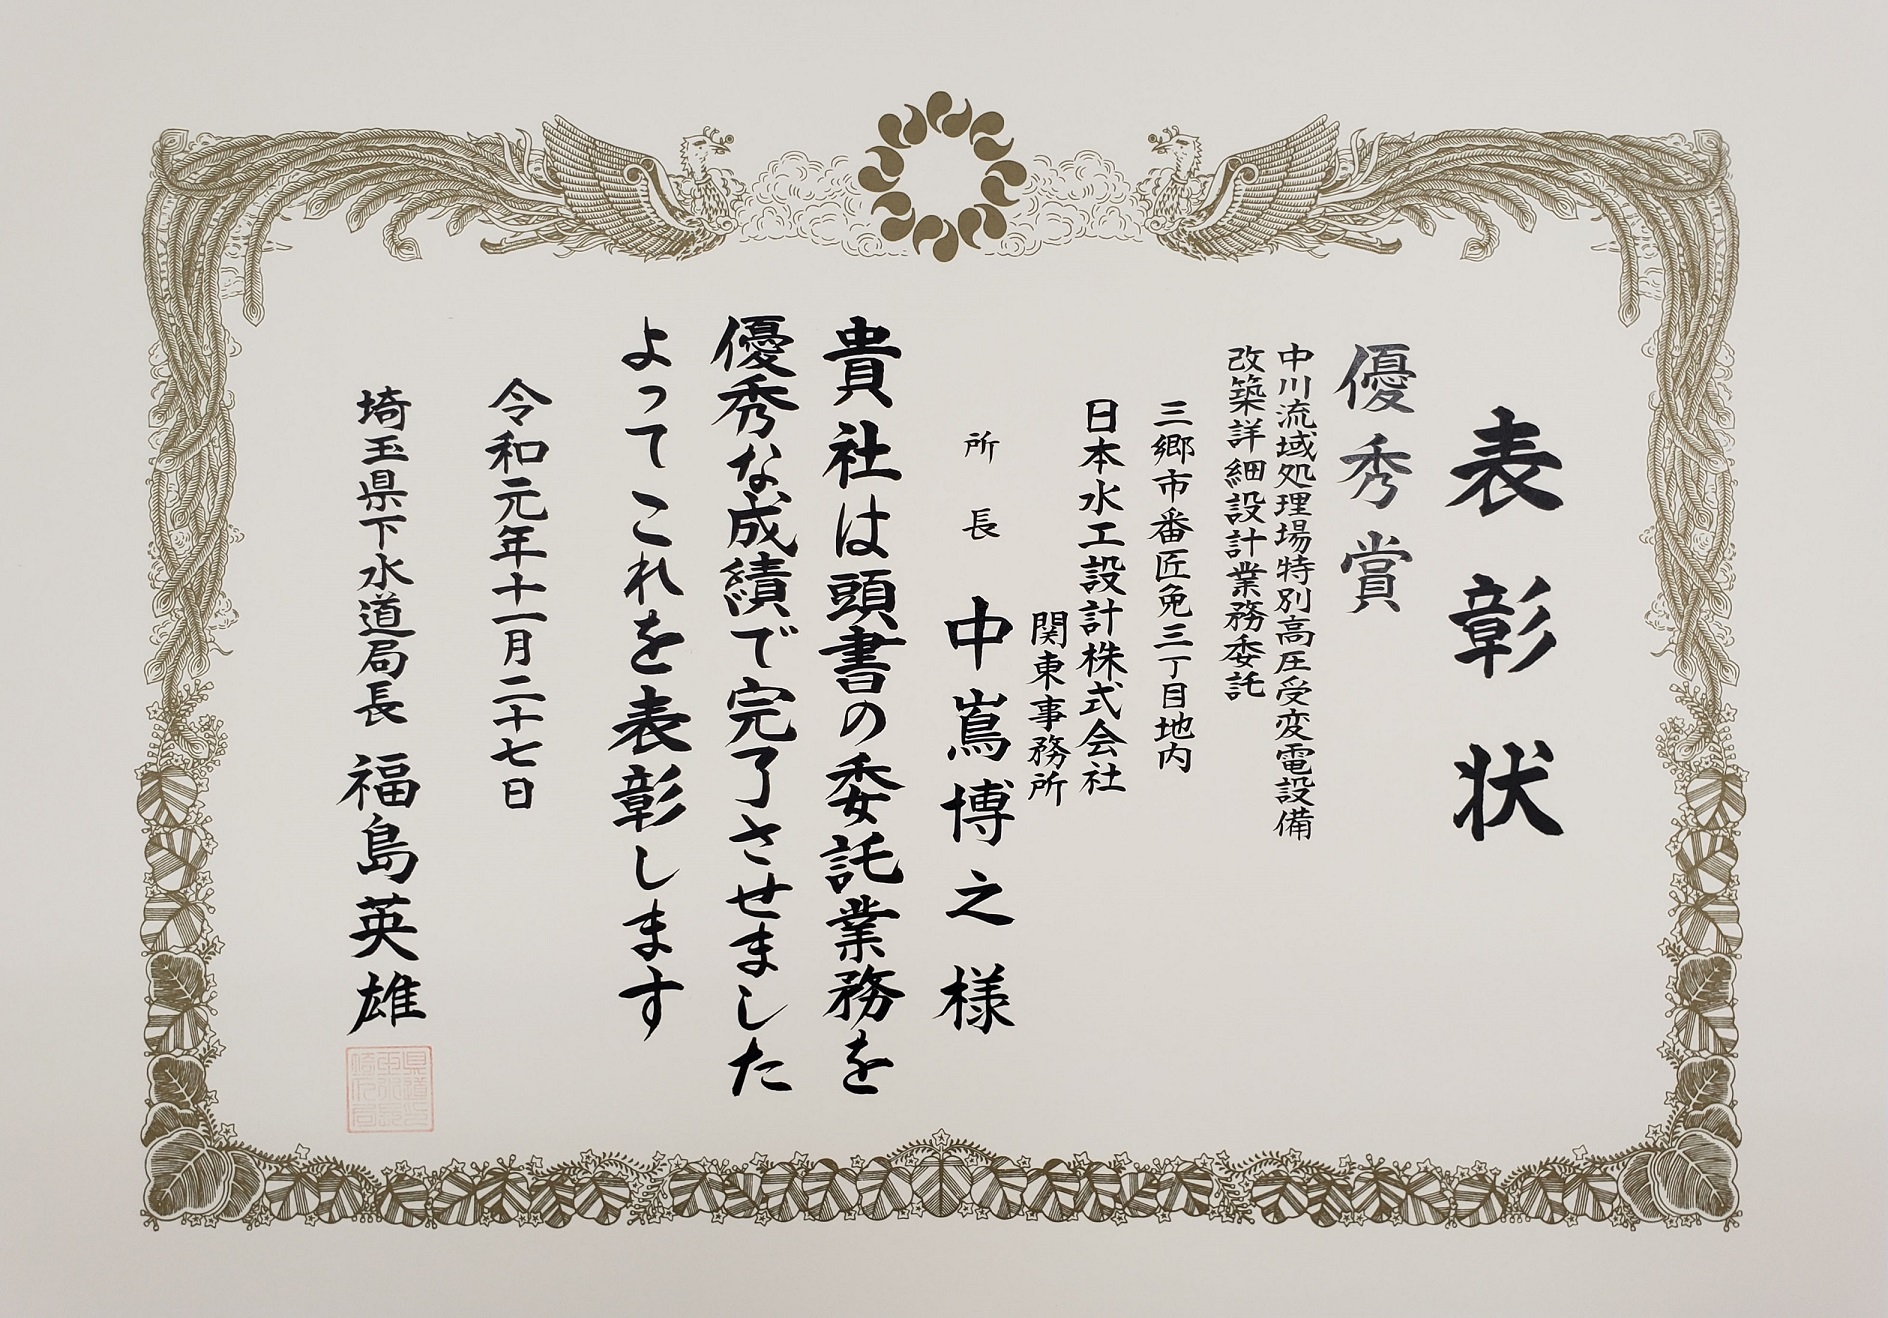 表彰状
優秀賞
中川流域処理場特別高圧受変電設備
改築詳細設計業務委託
三郷市番匠免三丁目地内
日本水工設計株式会社
関東事務所
所長 中嶌博之様
貴社は頭書の委託業務を
優秀な成績で完了させました
よってこれを表彰します
令和元年十一月二十七日
埼玉県下水道局長 福島英雄